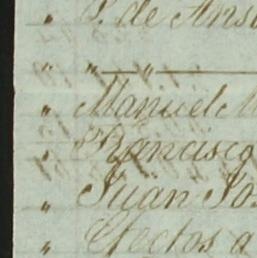 „ P. de Ans
„ „ — „ —
„ Manuel M
„ Francisco
„ Juan Jo
„ Efectos a